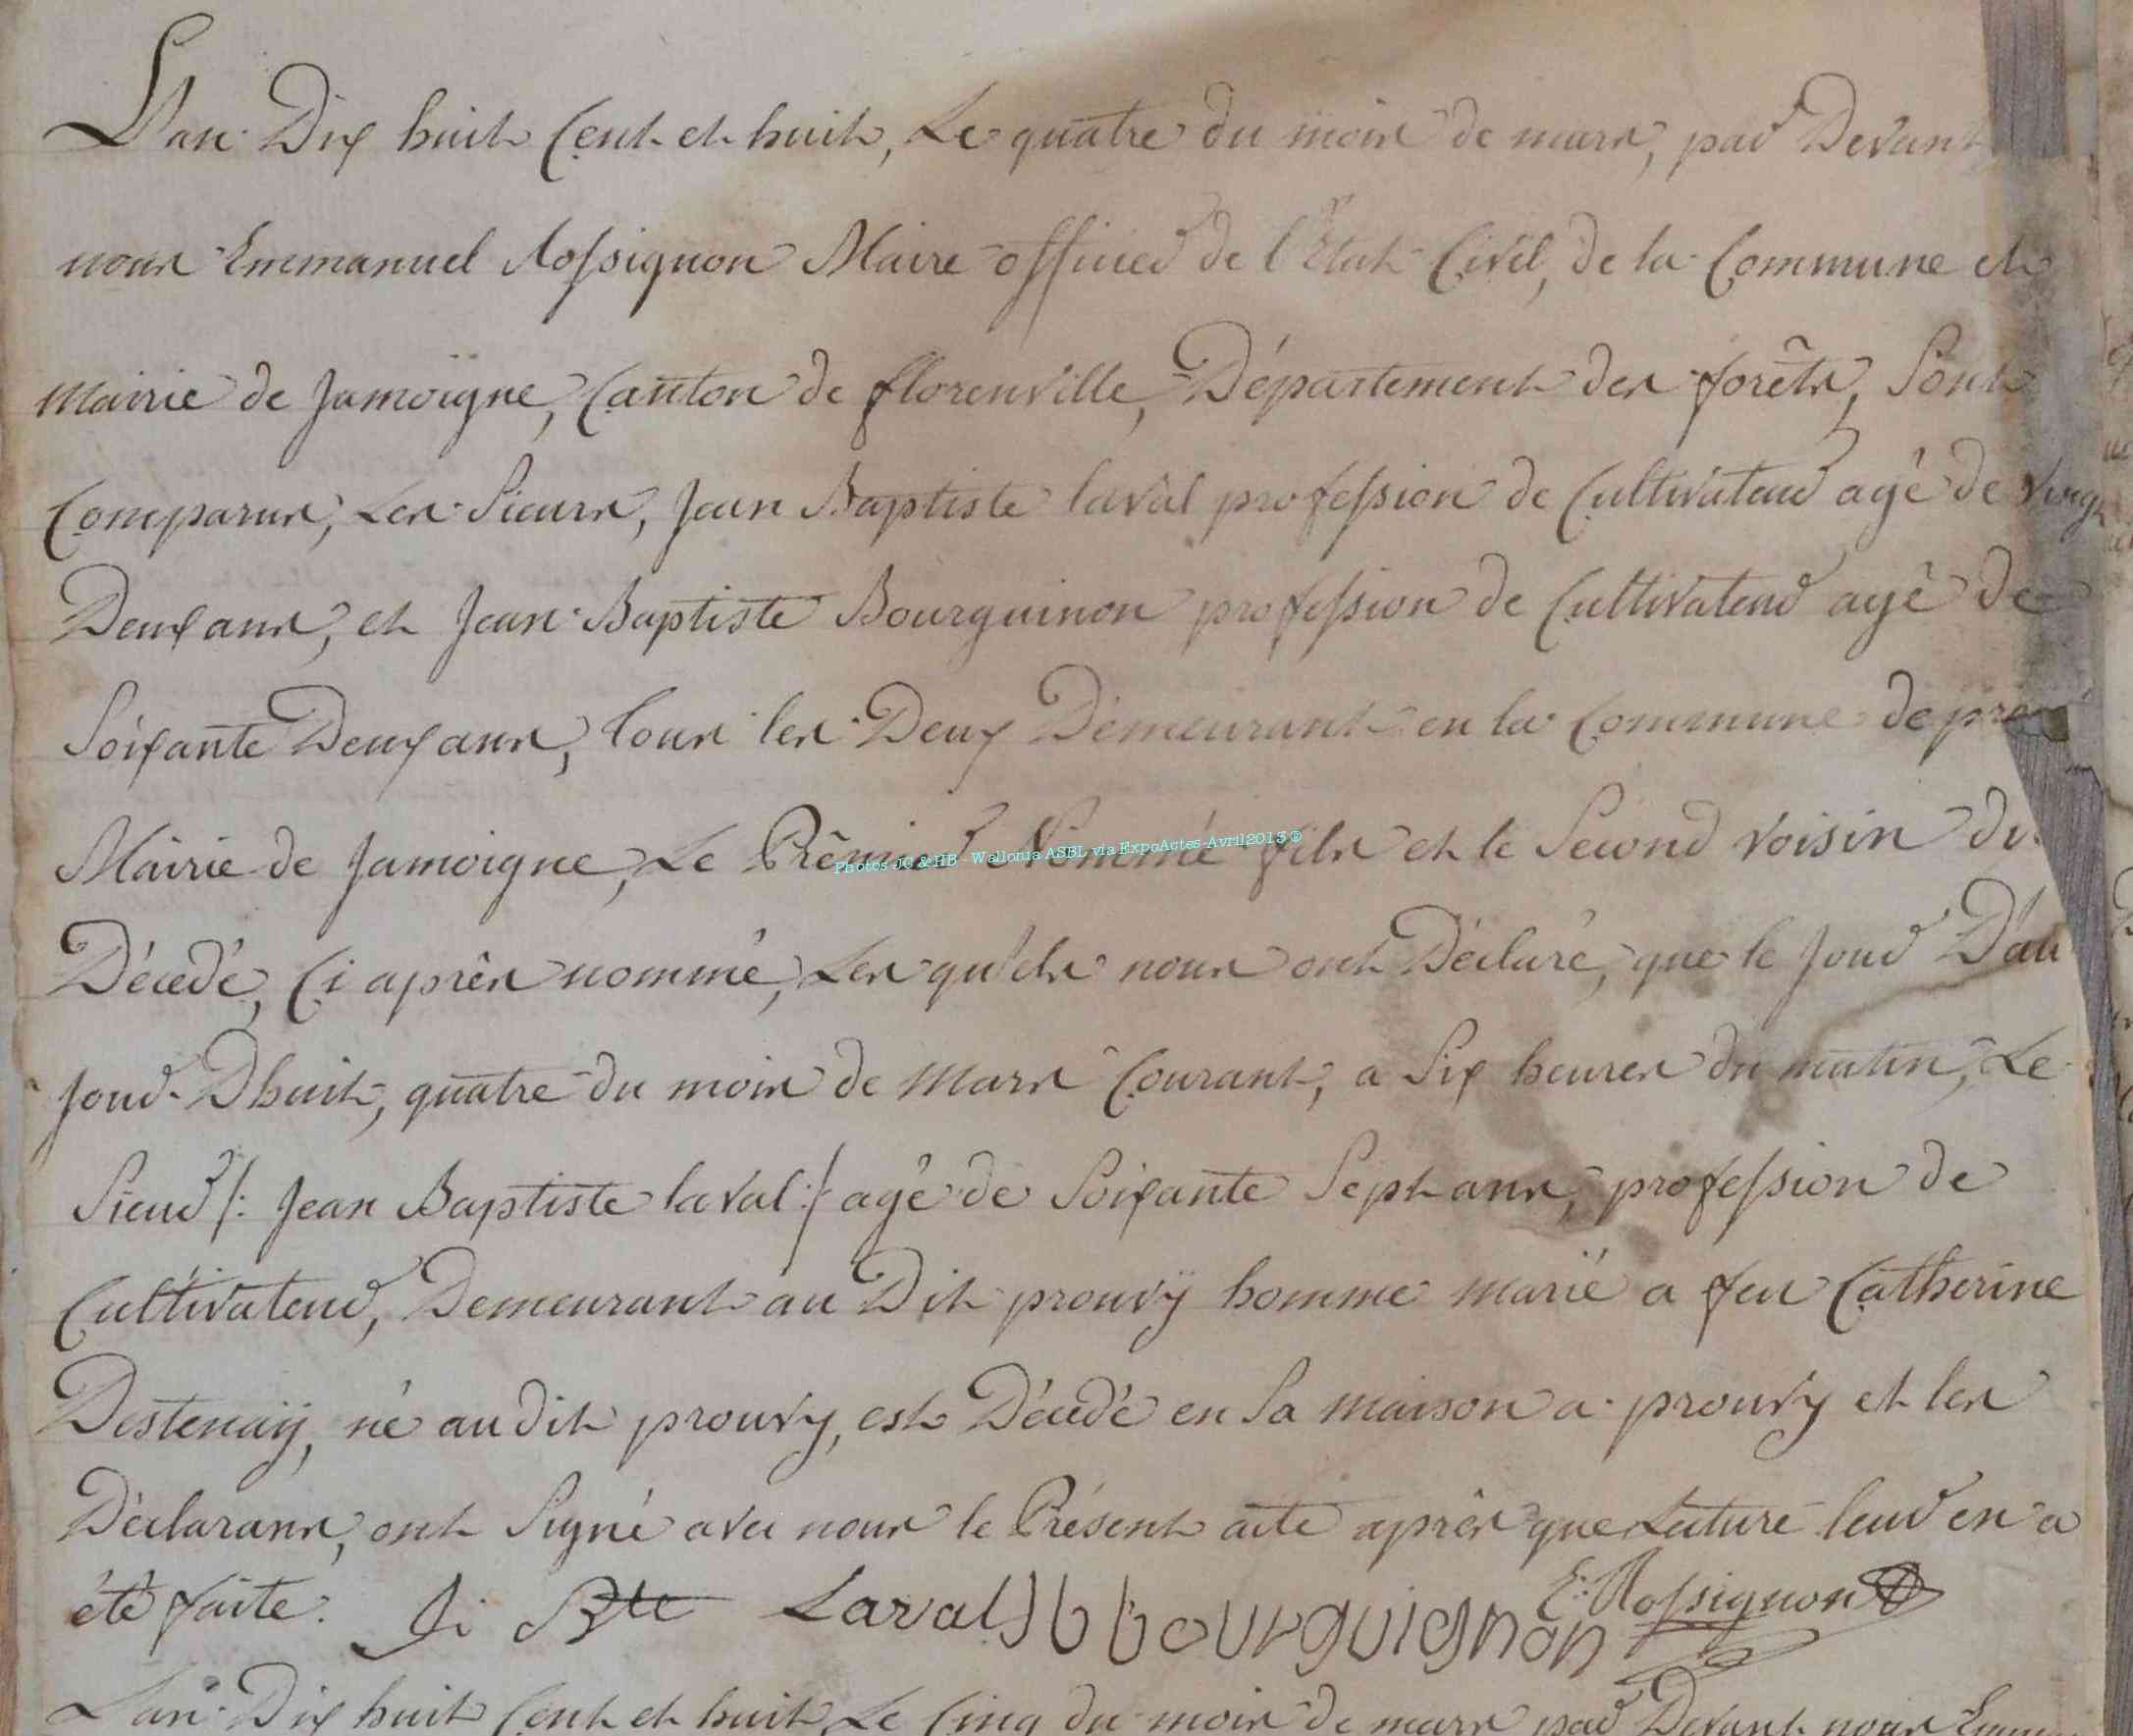 L'an Dix huit Cent et huit, Le quatre du mois de mars, par Devant
nous Emmanuel Rossignon Maire officier de l'Etat Civil, de la Commune et
Mairie de Jamoigne, Canton de florenville, Département des forêts, Sont
Comparus, Les Sieurs, Jean Baptiste laval profession de Cultivateur agé de vingt
Deux ans, et Jean Baptiste Bourguinon profession de Cultivateur agé de
Soixante Deux ans, tous les Deux Demeurant en la Commune de
Mairie de Jamoigne, Le Prêmier Nommé fils et le Second voisin du
Décedé, Ci aprês nommé, Les quels nous ont Déclaré, que le Jour D'au
Jour Dhuit, quatre du mois de Mars Courant, a Six heures du matin, Le
Sieur /: Jean Baptiste laval :/ agé de Soixante Sept ans, profession de
Cultivateur, Demeurant au Dit prouvÿ homme marié a feu Catherine
Destenaÿ, né au dit prouvy, est Décedé en Sa maison a prouvy et les
Déclarans, ont Signé avec nous le Présent acte aprês que Lecture leur en a
été faite. Ji Bte Laval JB bourguignon E: Rossignon
L'an Dix huit Cent et huit, Le Cinq du mois de mars par Devant nous
Photos JC & HB - Wallonia ASBL via ExpoActes-Avril2015 ®